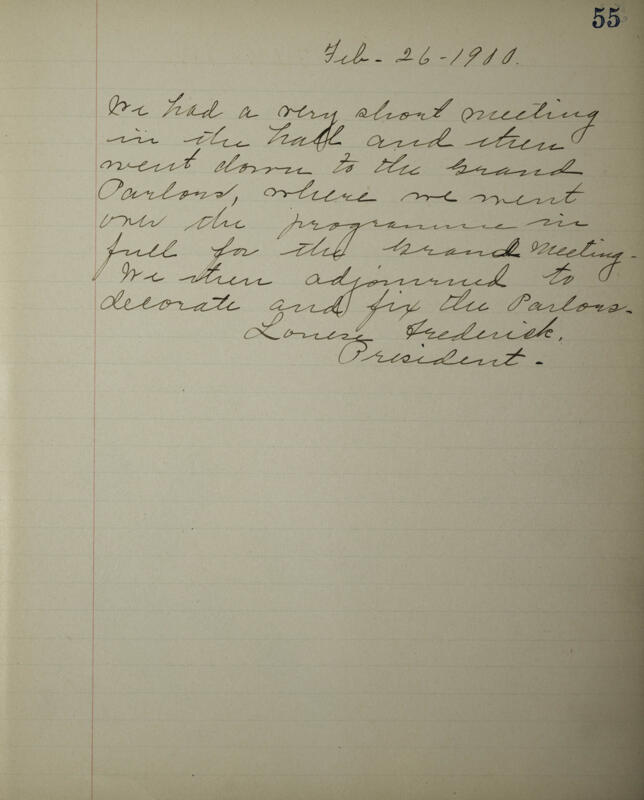 55
Feb - 26 - 1900.
We had a very short meeting
in the hall and then
went down to the Grand
Parlors, where we went
over the programme in
full for the Grand Meeting -
We then adjourned to
decorate and fix the Parlors -
Louise Frederick.
President -